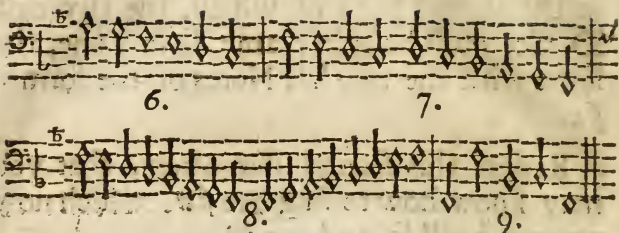 6. 7.
8. 9.